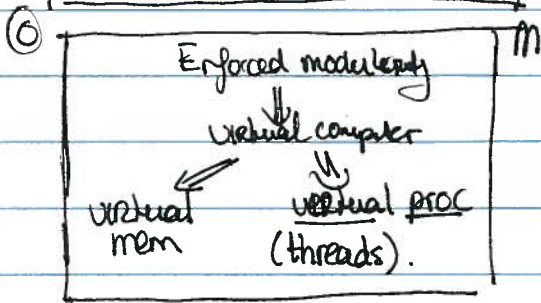 ⑥ m
Enforced modularity
⇓
virtual computer
virtual virtual proc
mem (threads).